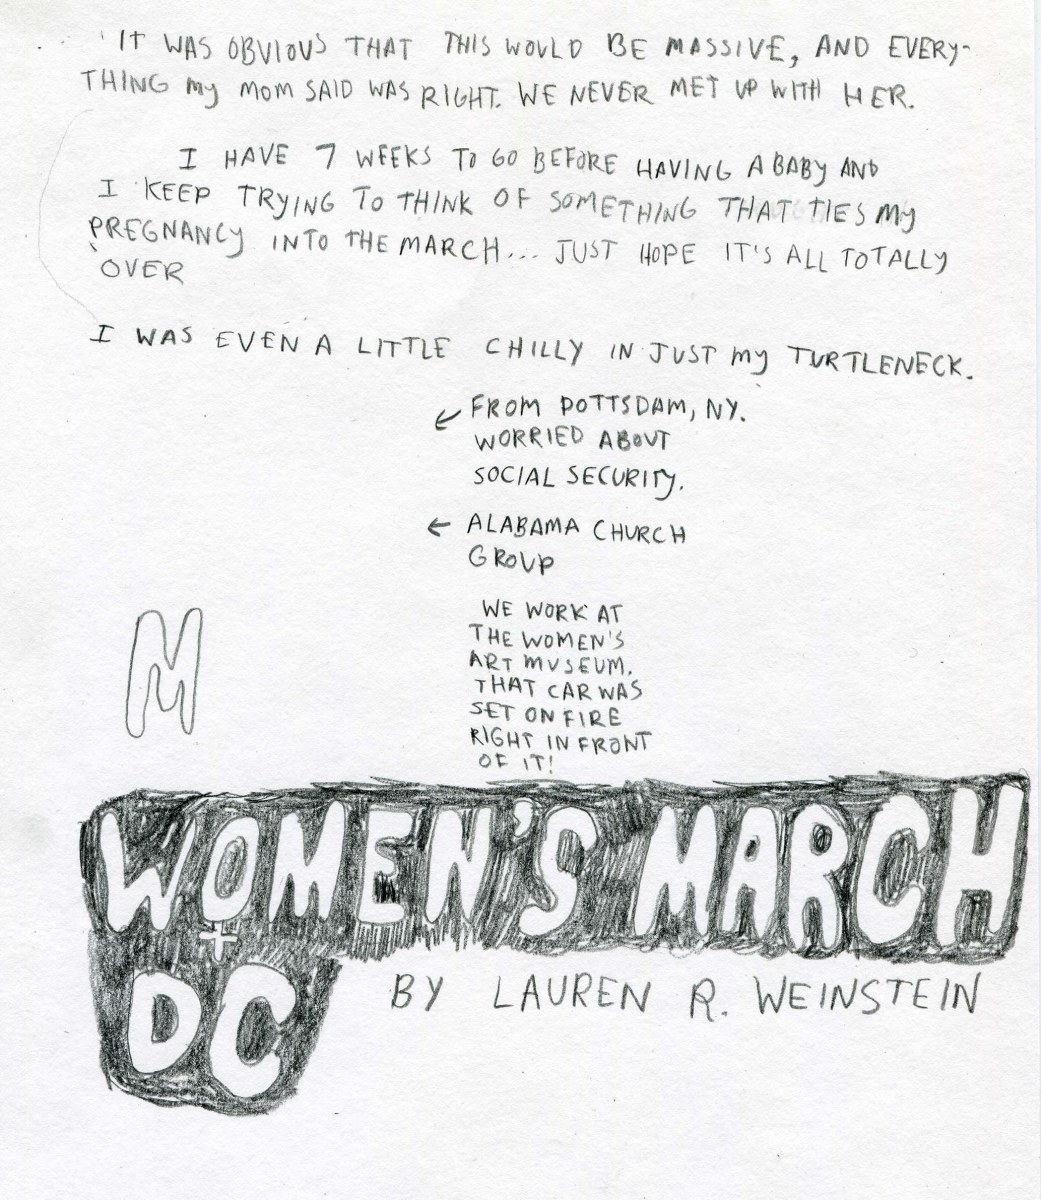 IT WAS OBVIOUS THAT THIS WOULD BE MASSIVE, AND EVERY-
THING MY MOM SAID WAS RIGHT. WE NEVER MET UP WITH HER.
I HAVE 7 WEEKS TO GO BEFORE HAVING A BABY AND
I KEEP TRYING TO THINK OF SOMETHING THAT TIES MY
PREGNANCY INTO THE MARCH... JUST HOPE IT'S ALL TOTALLY
OVER
I WAS EVEN A LITTLE CHILLY IN JUST MY TURTLENECK.
FROM POTTSDAM, NY.
WORRIED ABOUT
SOCIAL SECURITY.
ALABAMA CHURCH
GROUP
WE WORK AT
THE WOMEN'S
ART MUSEUM.
THAT CAR WAS
SET ON FIRE
RIGHT IN FRONT
OF IT!
M
WOMEN'S MARCH
DC
BY LAUREN R. WEINSTEIN